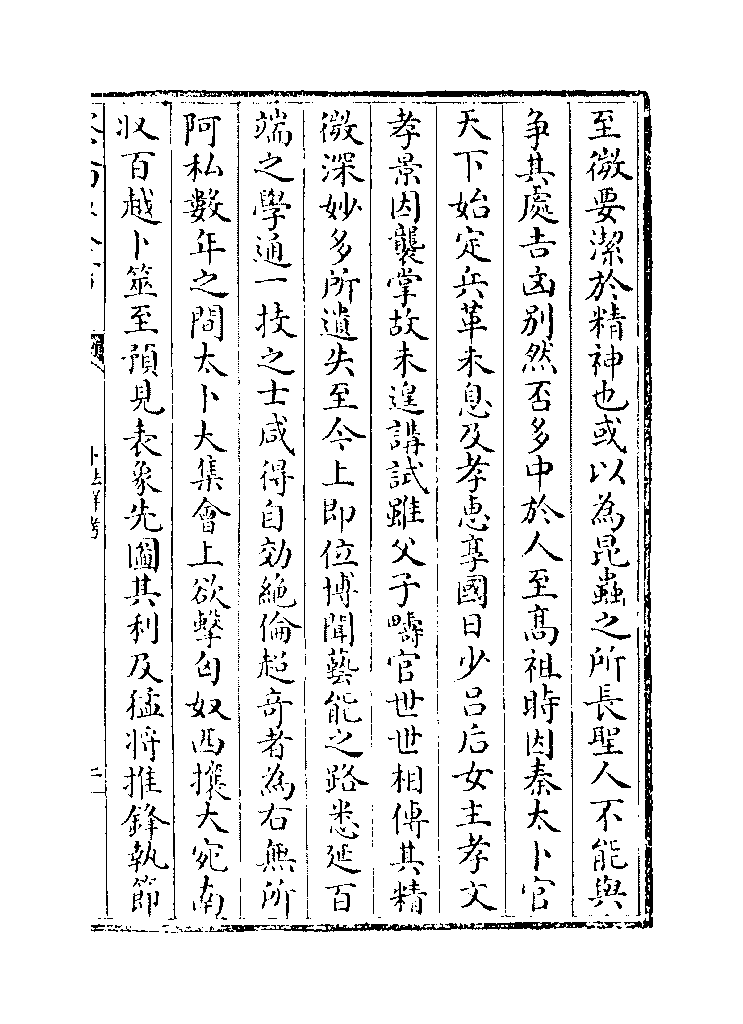 至微要潔於精神也或以為昆蟲之所長聖人不能與
争其處吉凶别然否多中於人至髙祖時因秦太卜官
天下始定兵革未息及孝惠享國日少吕后女主孝文
孝景因襲掌故未遑講試雖父子疇官世世相傳其精
微深妙多所遺失至今上即位博聞藝能之路悉延百
端之學通一技之士咸得自効絶倫超竒者為右無所
阿私數年之間太卜大集會上欲擊匈奴西攘大宛南
収百越卜筮至預見表象先圖其利及猛将推鋒執節
卜法詳考